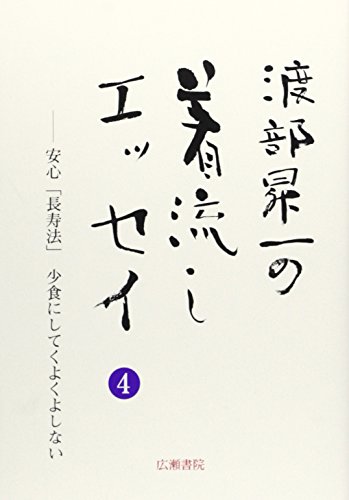 渡部昇一の
着流し
エッセイ
4
——安心「長寿法」 少食にしてくよくよしない
広瀬書院